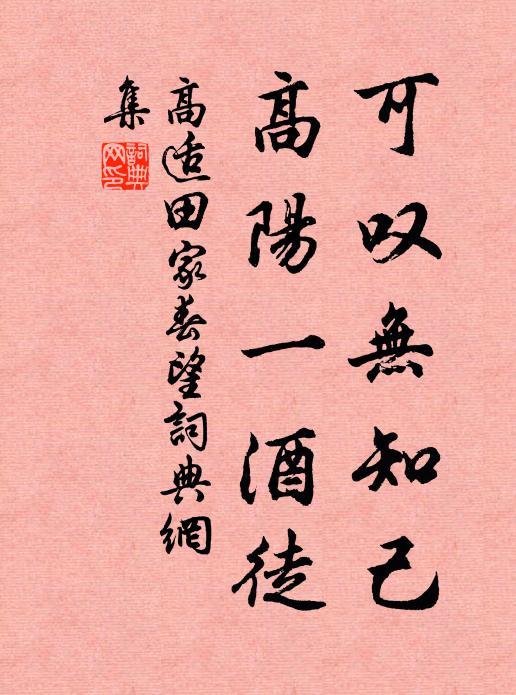 可叹無知己
高陽一酒徒
高适田家春望詞典網
集
詞典網印